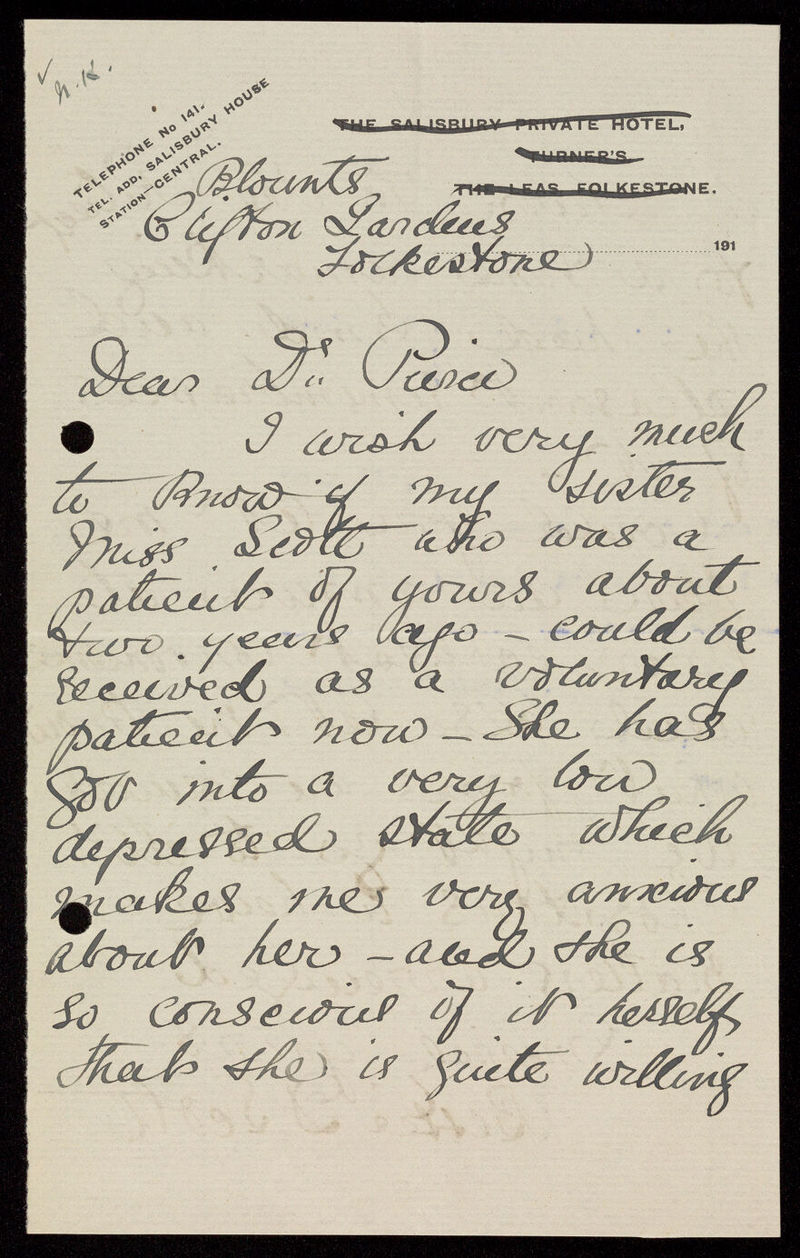 ✓ N.K.
TELEPHONE No 141.
TEL. ADD, SALISBURY HOUSE
STATION—CENTRAL.
THE SALISBURY PRIVATE HOTEL,
TURNER'S
THE LEAS, FOLKESTONE.
Blounts
Clifton Gardens
Folkestone
191
Dear Dr. Pierce
I wish very much
to know if my sister
Miss Scott who was a
patient of yours about
two years ago – could be
received as a voluntary
patient now – She has
got into a very low
depressed state which
makes me very anxious
about her – and she is
so conscious of it herself
that she is quite willing